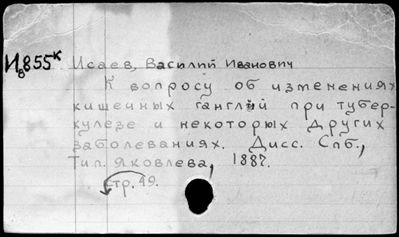 И8855к Исаев, Василий Иванович
К вопросу об изменениях
кишечных ганглий при тубер-
кулезе и некоторых других
заболеваниях. Дисс. Спб.,
Тип. Яковлева, 1887.
Стр. 49.